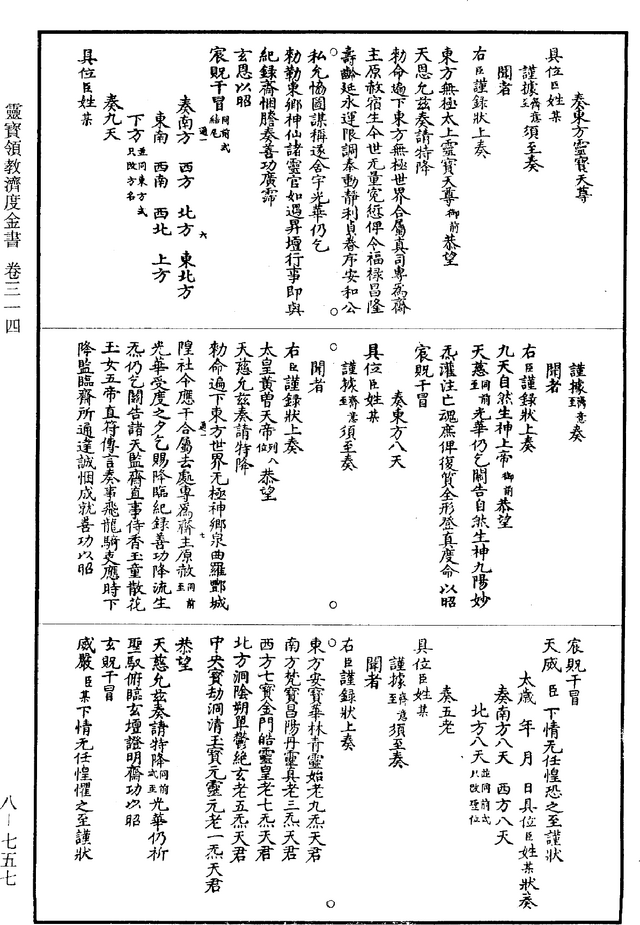 奏東方靈寶天尊
具位臣姓某
謹據齋意至須至奏
聞者
右臣謹錄狀上奏
東方無極太上靈寶天尊御前恭望
天恩允茲奏請特降
勑命遍下東方無極世界合屬真司專為齋
主原赦宿生今世无量寃愆俾令福祿昌隆
壽齡延永運限調泰動靜利貞眷序安和公
私允愶圖謀稱遂舍宇光華仍乞
勑勒東鄉神仙諸靈官如遇昇壇行事即與
紀錄齋悃謄奏善功廣霈
玄恩以昭
宸貺干冒同前式結尾
奏南方 西方 北方 東北方
東南 西南 西北 上方
下方並同東方式只改方名
奏九天
具位臣姓某
謹據齋意至奏
聞者
右臣謹錄狀上奏
九天自然生神上帝御前恭望
天慈同前至光華仍乞關告自然生神九陽妙
炁灌注亡魂庶俾復質全形登真度命以昭
宸貺干冒
奏東方八天
具位臣姓某
謹據齋意至須至奏
聞者
右臣謹錄狀上奏
太皇黃曾天帝列八位恭望
天慈允茲奏請特降
勑命遍下東方世界无極神鄉泉曲羅酆城
隍社令應干合屬去處專為齋主原赦同前至
光華受度之夕乞賜降臨紀錄善功降流生
炁仍乞關告諸天監齋直事侍香玉童散花
玉女五帝直符傳言奏事飛龍騎吏應時下
降監臨齋所通達誠悃成就善功以昭
宸貺干冒
天威臣下情无任惶恐之至謹狀
太歲 年 月 日具位臣姓某狀奏
奏南方八天 西方八天
北方八天並同前式只改聖位
奏五老
具位臣姓某
謹據齋意至須至奏
聞者
右臣謹錄狀上奏
東方安寶華林青靈始老九炁天君
南方梵寶昌陽丹靈真老三炁天君
西方七寶金門皓靈皇老七炁天君
北方洞陰朔單鬱絕玄老五炁天君
中央寶劫洞清玉寶元靈元老一炁天君
恭望
天慈允茲奏請特降同前式至光華仍祈
聖馭俯臨玄壇證明齋功以昭
玄貺干冒
威嚴臣某下情无任惶懼之至謹狀
靈寶領教濟度金書 卷三一四
八—七五七